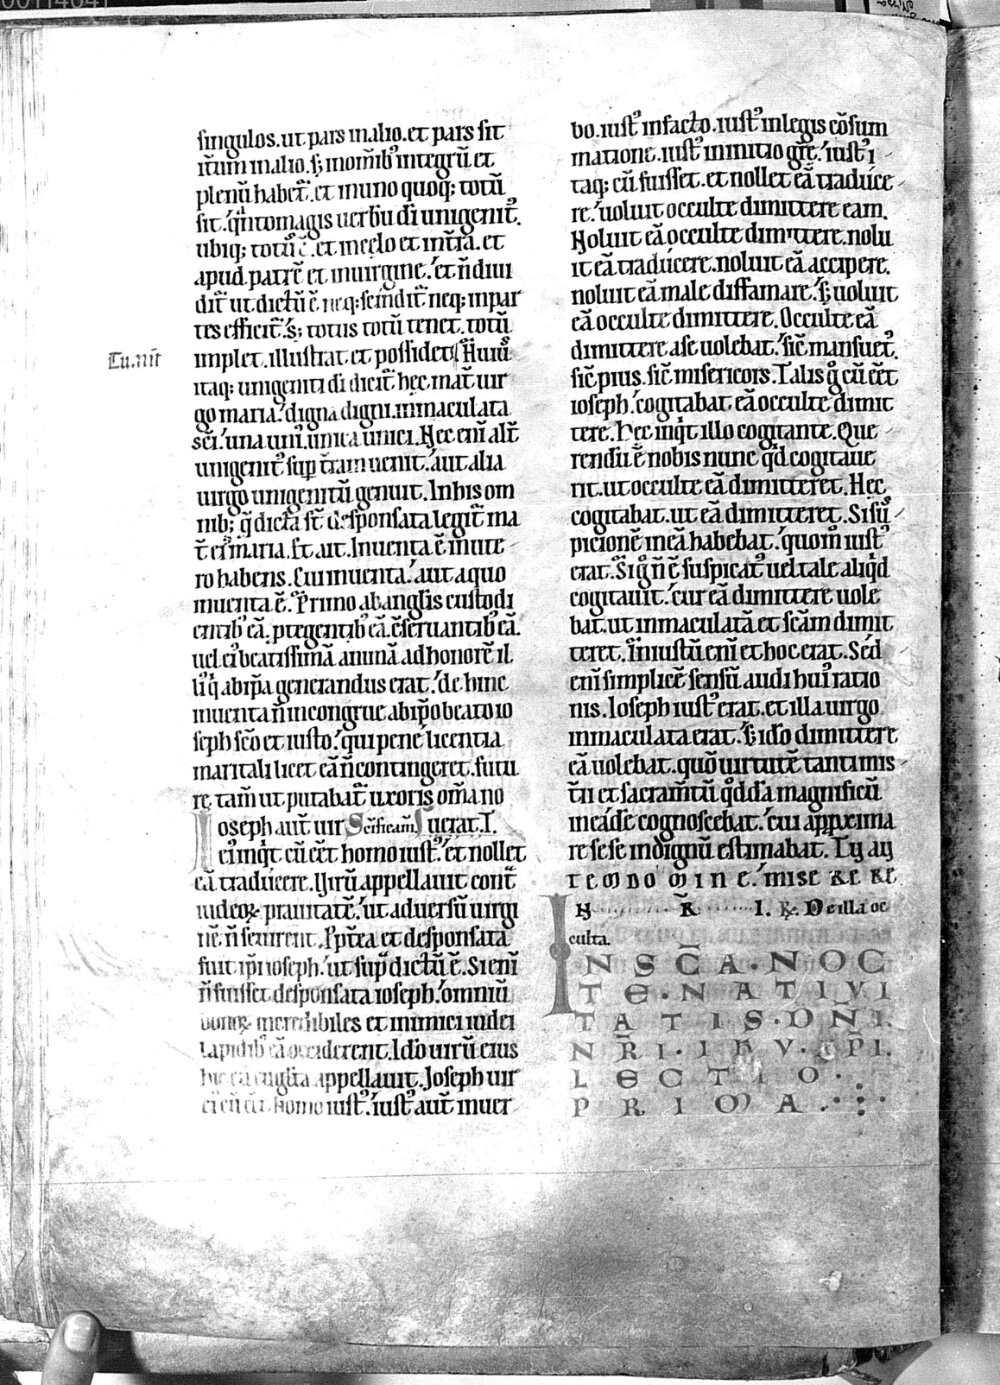 singulos. ut pars in alio. et pars sit
it̃um in alio. s; in om̃ib' integrũ et
plenũ haber̃. et in uno quoq; totũ
sit. q̃nto magis uerbũ di unigenit'.
ubiq; totũ ẽ. et in cẹlo et in tr̃a. et
apud patrẽ et in uirgine. et ñ diui
dit̃ ut dictũ ẽ. neq; scindit̃ neq; in par
tes efficit̃. s; totus totũ tenet. totũ
Tu. nit̃
implet. illustrat. et possidet. Huiũ
itaq; unigeniti di dicit̃ hec mat̃ uir
go maria. digna digni. inmaculata
sc̃i. una uni. unica unici. Nec eni alt̃
unigenit' sup tr̃am uenit. aut alia
uirgo unigenitũ genuit. In his om
nib; q̃ dicta st̃ desponsata legit̃ ma
t̃ ei' maria. Et ait. Inuenta ẽ in ute
ro habens. Cui inuenta. aut a quo
inuenta ẽ. Primo ab anglis custodi
entib' eã. ptegentib' eã. c̃seruantib' eã.
uel ei' beatissimã animã ad honorẽ il
li' q̇ ab ip̃a generandus erat. dehinc
inuenta ñ incongrue ab ip̃o beato io
seph sc̃o et iusto. qui pene licentia
maritali licet eã ñ contingeret. futu
rẹ tam̃ ut putabat̃ uxoris om̃a no
Ioseph aut̃ uir Sc̃ificam̃. uerat. I.
ei' inq̇t cũ eẽt homo iust'. et nollet
eã traducere. Virũ appellauit cont̃
iudeoꝝ prauitatẽ. ut aduersũ uirgi
nẽ ñ seuirent. Ppt̃ea et desponsata
fuit ip̃i ioseph. ut sup dictũ ẽ. Si eni
ñ fuisset desponsata ioseph. omniũ
bonoꝝ incredibiles et inimici iudei
lapidib' eã occiderent. Ido uirũ eius
hic euuglĩa appellauit. Ioseph uir
ei' cũ eẽt homo iust'. iust' aut̃ in uer
bo. iust' in facto. iust' in legis cõsum
matione. iust' in initio gr̃e. iust' i
taq; cũ fuisset. et nollet eã traduce
re. uoluit occulte dimittere eam.
Noluit eã occulte dimittere. nolu
it eã traducere. noluit eã accipere.
noluit eã male diffamare. S; uoluit
eã occulte dimittere. Occulte eã
dimittere a se uolebat. sic̃ mansuet'.
sic̃ pius. sic̃ misericors. Talis g̊ cũ eẽt
ioseph. cogitabat eã occulte dimit
tere. Hec inq̇t illo cogitante. Que
rendũ ẽ nobis nunc q̇d cogitaue
rit. ut occulte eã dimitteret. Hec
cogitabat. ut eã dimitteret. Si su
picionẽ in eã habebat. quom̊ iust'
erat. Si g̊ ñ ẽ suspicat' uel tale aliq̇d
cogitauit. cur eã dimittere uole
bat. ut inmaculatã et sc̃am dimit
teret. Iniustũ eni et hoc erat. Sed
eni simplicẽ sensũ. audi hui' ratio
nis. Ioseph iust' erat. et illa uirgo
inmaculata erat. S; ido dimittere
eã uolebat. quo uirtutẽ tanti mis
t̃ii et sacram̃tũ q̇ddã magnificũ
in eadẽ cognoscebat. cui approxima
re sese indignũ estimabat. Tu au
tem Domine. miserere
N R I. ꝶ. De illa oc
culta.
IN SC̃A. NOC
TE. NATIVI
TATIS. DÑI.
NR̃I. IHV. XP̃I.
LECTIO.
PRIMA.